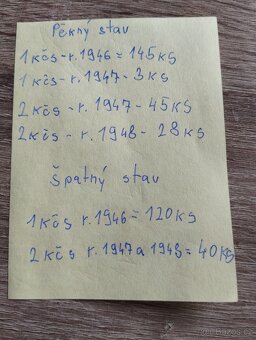 Pěkný stav
1 Kčs - r. 1946 = 145 ks
1 Kčs - r. 1947 - 3 ks
2 Kčs - r. 1947 - 45 ks
2 Kčs - r. 1948 - 28 ks
Špatný stav
1 Kčs r. 1946 = 120 ks
2 Kčs r. 1947 a 1948 = 40 ks